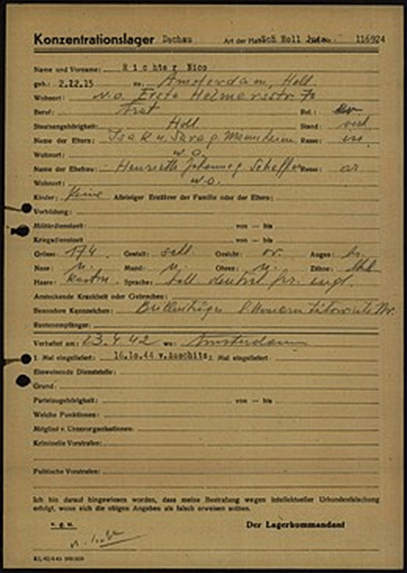 Konzentrationslager Dachau Art der Haft: Sch Holl Jude 116924
Name und Vorname: Richter Nico
geb.: 2.12.15 zu: Amsterdam, Holl.
Wohnort: w.o. Eerste Helmersstr. 72
Beruf: Arzt Rel.:
Staatsangehörigkeit: Holl. Stand: verh.
Name der Eltern: Isak u. Sara g. Mannheim Rasse:
Wohnort: w.o.
Name der Ehefrau: Henriette Johanna g. Scheffer Rasse: ar
Wohnort: w.o.
Kinder: keine Alleiniger Ernährer der Familie oder der Eltern:
Vorbildung:
Militärdienstzeit: von — bis
Kriegsdienstzeit: von — bis
Grösse: 174 Gestalt: schl. Gesicht: ov. Augen: br.
Nase: n. Mund: n. Ohren: n. Zähne:
Haare: Sprache: holl deutsch frz. engl.
Ansteckende Krankheit oder Gebrechen:
Besondere Kennzeichen: Brillenträger Nr.
Rentenempfänger:
Verhaftet am: 23.4.42 wo: Amsterdam
1. Mal eingeliefert: 16.10.44 v. Auschwitz Mal eingeliefert
Einweisende Dienststelle:
Grund:
Parteizugehörigkeit: von — bis
Welche Funktionen:
Mitglied v. Unterorganisationen:
Kriminelle Vorstrafen:
Politische Vorstrafen:
Ich bin darauf hingewiesen worden, dass meine Bestrafung wegen intellektueller Urkundenfälschung
erfolgt, wenn sich die obigen Angaben als falsch erweisen sollten.
v. g. u. Der Lagerkommandant